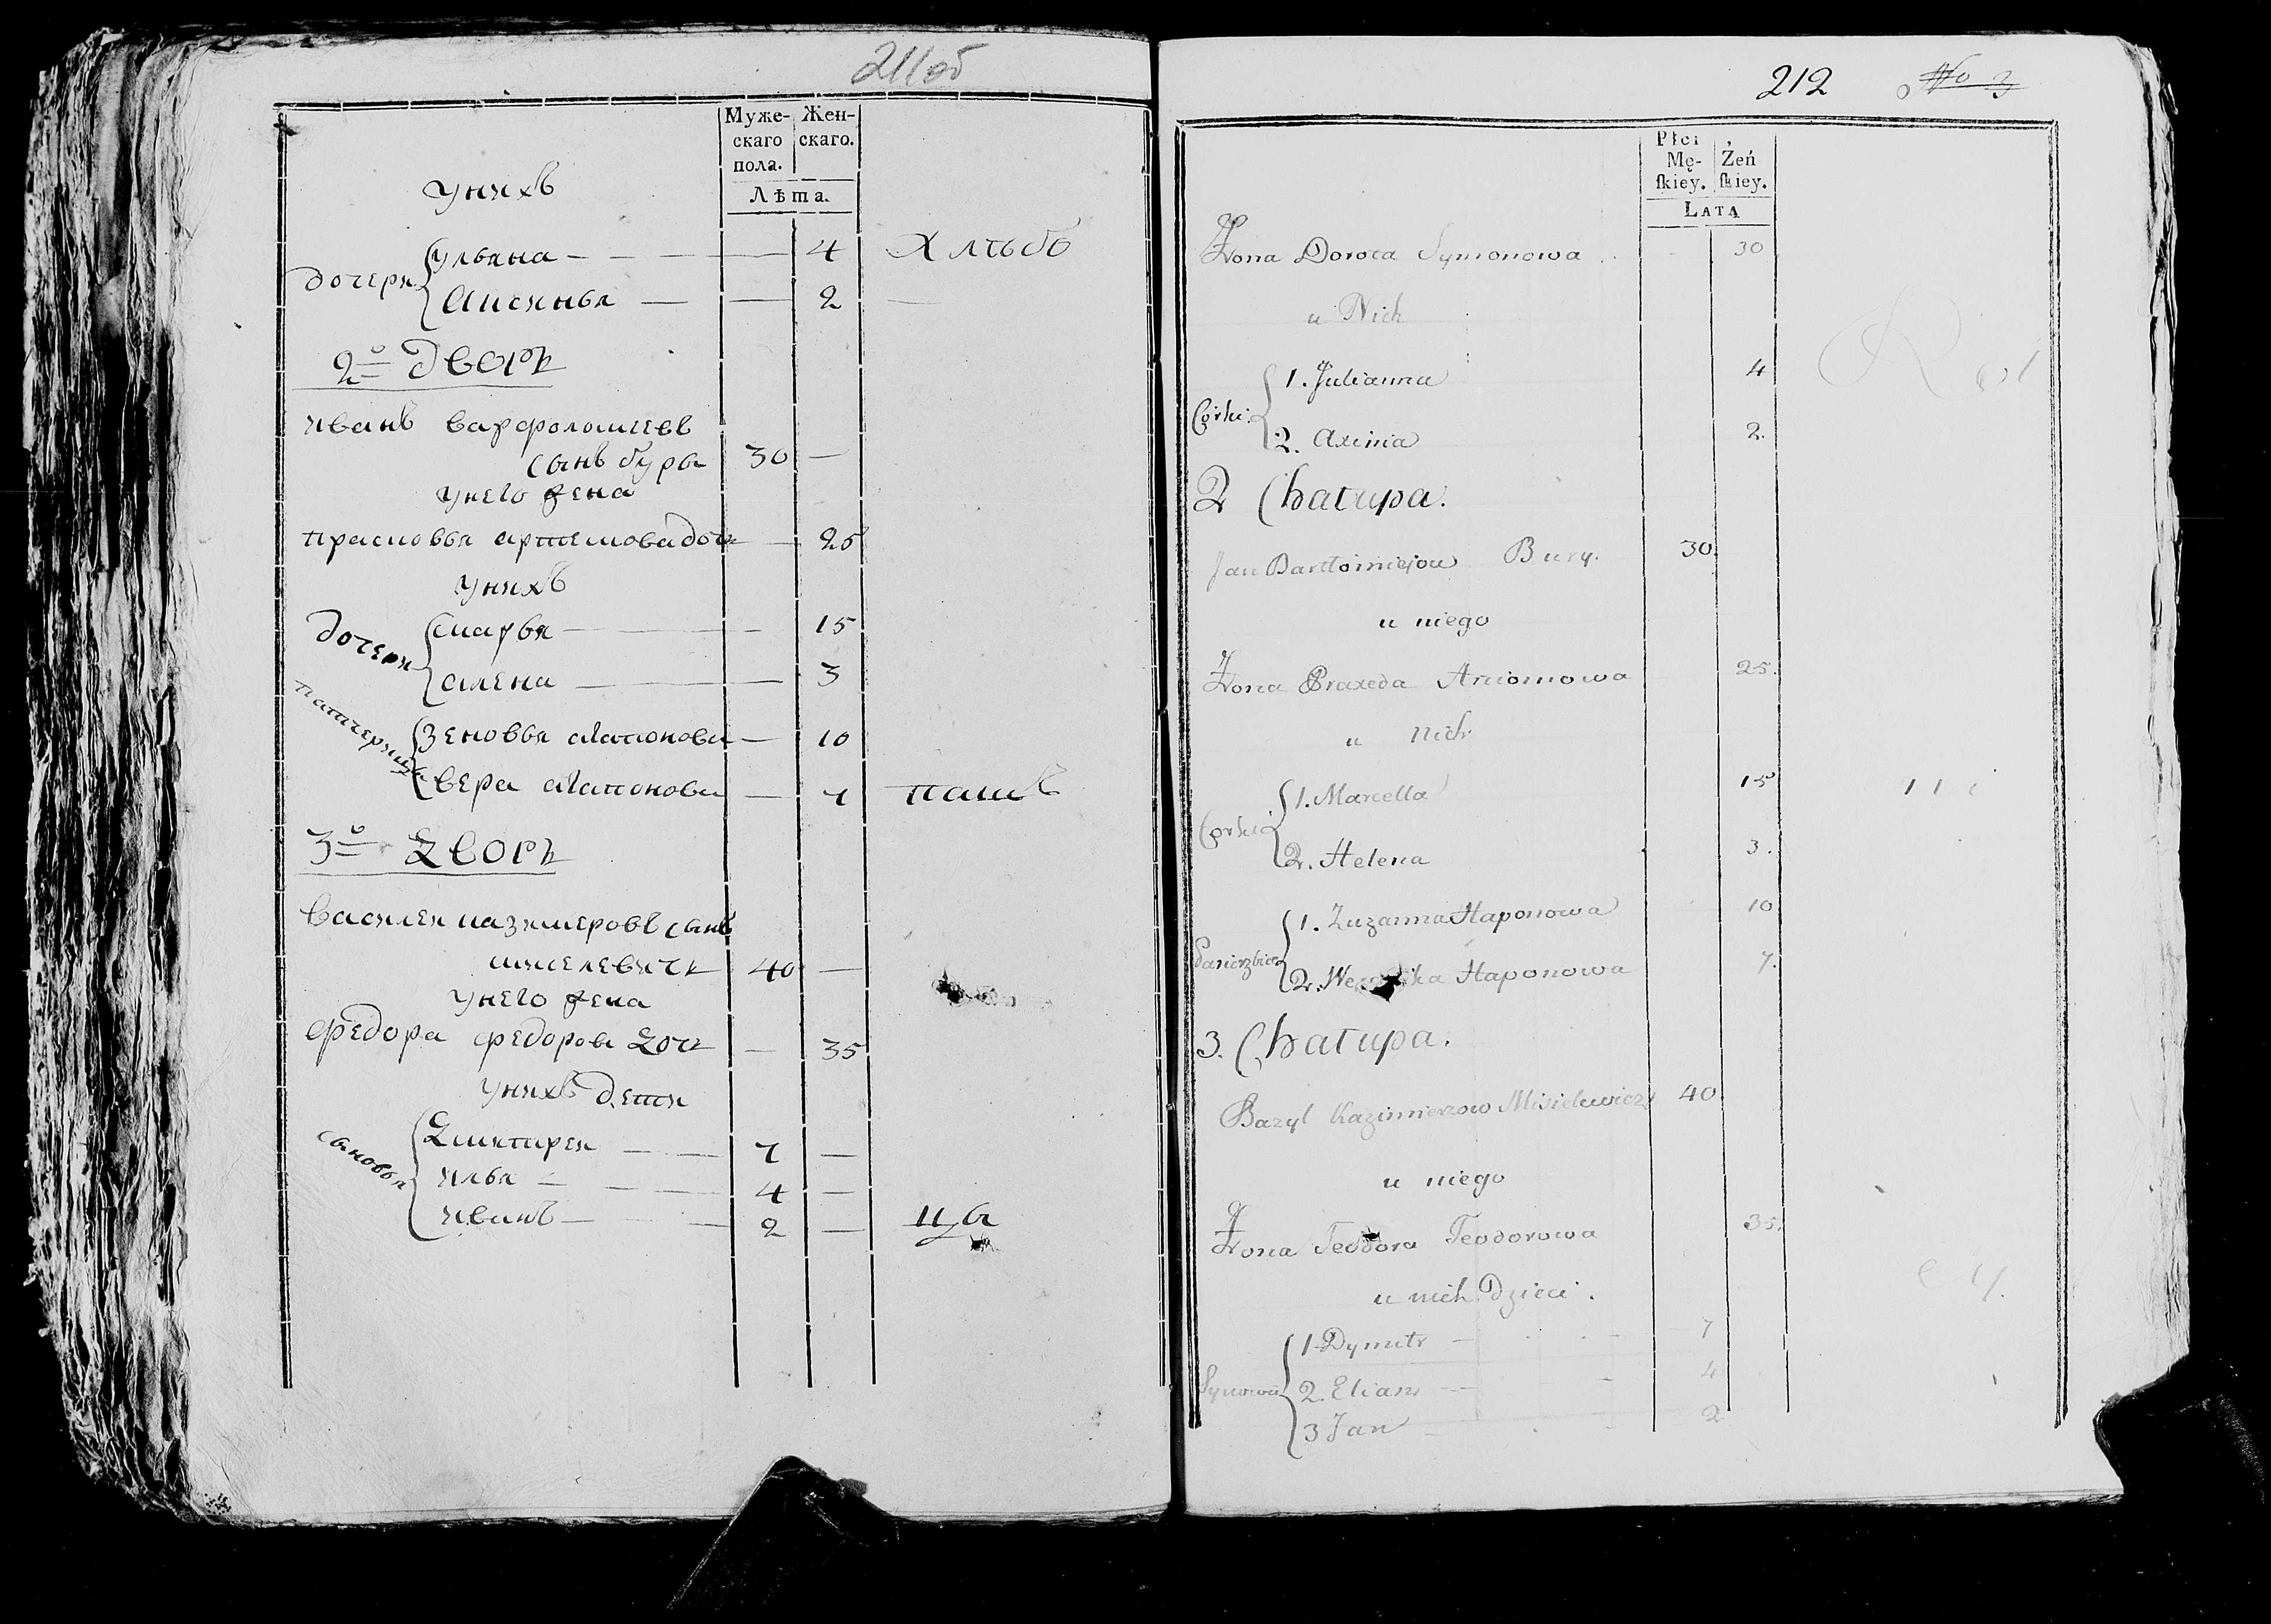 211об
Муже- Жен-
скаго скаго.
пола.
Лѣта.
у нихъ
дочери
ульяна — — — — 4 Хлѣбо
Аксинья — — 2 —
2о дворъ
иванъ варфоломѣевъ
сынъ буры 30 —
у него жена
прасковья артемова дочь — 25
у нихъ
дочери
марья — — — 15
алена — — 3
патчерицы
зеновья агапонова — 10
вера агапонова — 7 пашъ
3о дворъ
василеи казимеровъ сынъ
миселевичь 40 —
у него жена
федора федорова дочь — 35
у нихъ дети
сыновья
дмитреи — — 7 —
илья — — — 4 —
иванъ — — 2 — цы
212 No 3
Płci
Mę- Żeń
ſkiey. ſkiey.
LATA
Żona Dorota Symonowa 30
u Nich
Córki
1. Julianna 4
2. Axinia 2.
2 Chałupa.
Jan Bartłomiejow Bury. 30
u niego
Żona Praxeda Arciomowa 25.
u nich
Córki
1. Marcella 15
2. Helena 3.
Pasierzbice
1. Zuzanna Haponowa 10
2. Haponowa 7.
3. Chałupa.
Bazyl Kazimierzow Misielewicz 40
u niego
Żona Teodora Teodorowa 35.
u nich Dzieci.
Synowie
1 Dymitr — 7
2. Eliasz — 4
3 Jan — 2